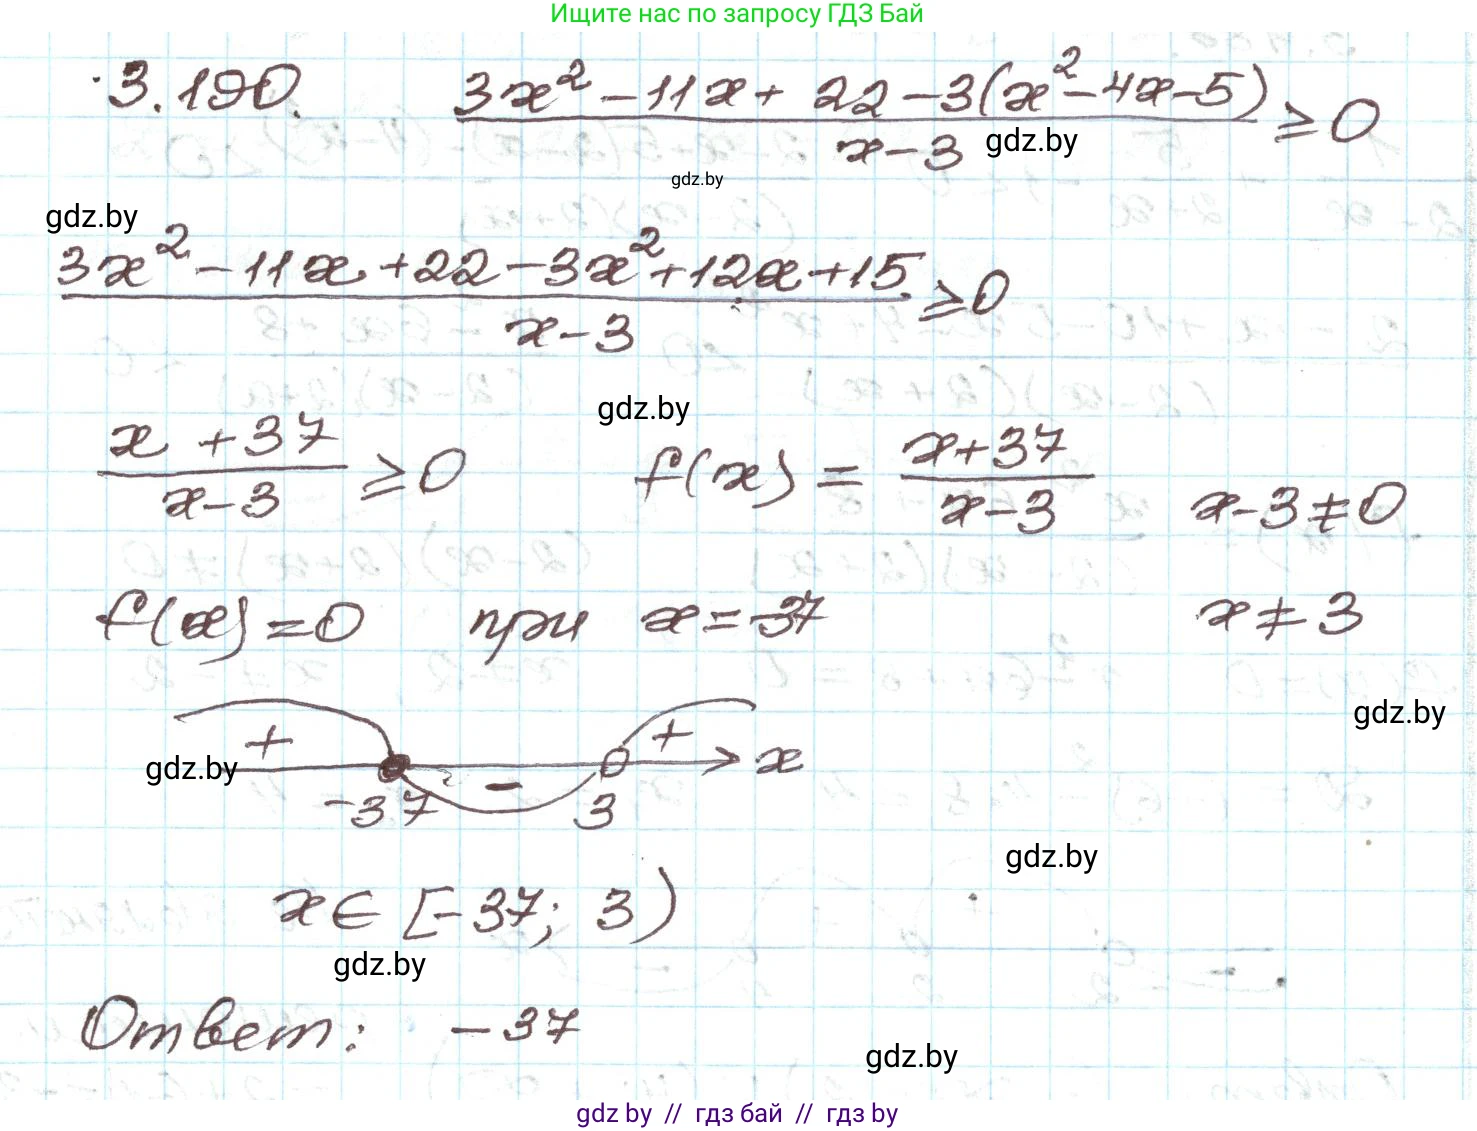 Ищите нас по запросу ГДЗ Бай
3.190. (3x² - 11x + 22 - 3(x² - 4x - 5))/(x - 3) ≥ 0
gdz.by
gdz.by
gdz.by
(3x² - 11x + 22 - 3x² + 12x + 15)/(x - 3) ≥ 0
gdz.by
(x + 37)/(x - 3) ≥ 0 f(x) = (x + 37)/(x - 3) x - 3 ≠ 0
f(x) = 0 при x = -37 x ≠ 3
gdz.by
+ - + x
gdz.by
-37 3
gdz.by
x ∈ [-37; 3)
gdz.by
Ответ: -37
gdz.by
gdz by // гдз бай // гдз by